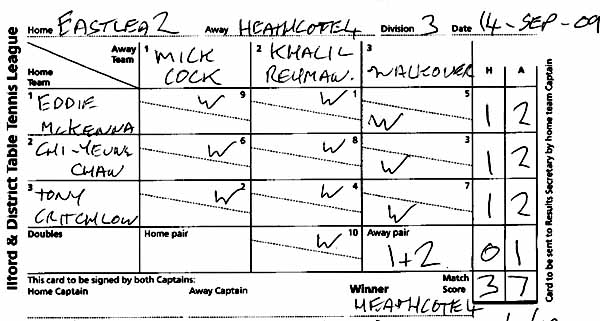 Home EASTLEA 2 Away HEATHCOTE 4 Division 3 Date 14-SEP-09
Ilford & District Table Tennis League
Away Team
Home Team
1 MICK COCK
2 KHALIL REHMAN.
3 WALKOVER
H A
1 EDDIE MCKENNA W 9 W 1 W 5 1 2
2 CHI-YEUNG CHAW W 6 W 8 W 3 1 2
3 TONY CRITCHLOW W 2 W 4 W 7 1 2
Doubles Home pair W 10 Away pair 1+2 0 1
This card to be signed by both Captains:
Home Captain Away Captain Winner HEATHCOTE 4 Match Score 3 7
Card to be sent to Results Secretary by home team Captain